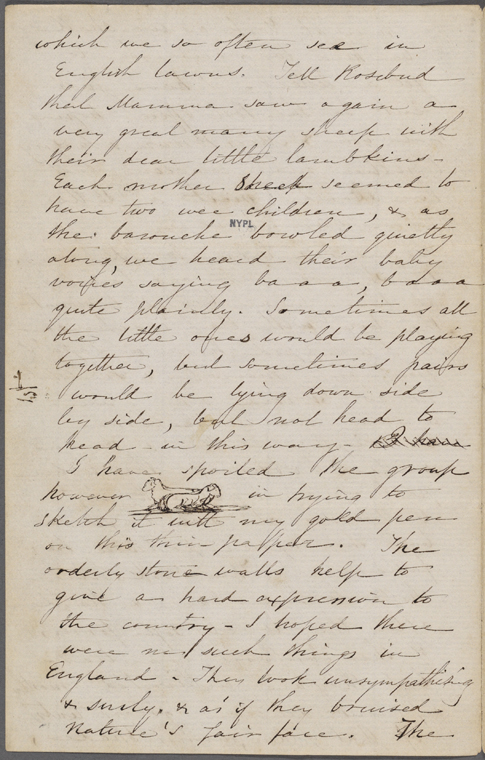 which we so often see in
English lawns. Tell Rosebud
that Mamma saw again a
very great many sheep with
their dear little lambkins-
Each mother Sheep seemed to
have two wee children, & as
NYPL
the barouche bowled quietly
along, we heard their baby
voices saying baaa, baaa
quite plainly. Sometimes all
the little ones would be playing
together, but sometimes pairs
would be lying down side
by side, but not head to
head - in this way -
I have spoiled the group
however in trying to
sketch it with my gold pen
on this thin paper. The
orderly stone walls help to
give a hard expression to
the country - I hoped there
were no such things in
England - They look unsympathising
& surly, & as if they bruised
Nature's fair face. The